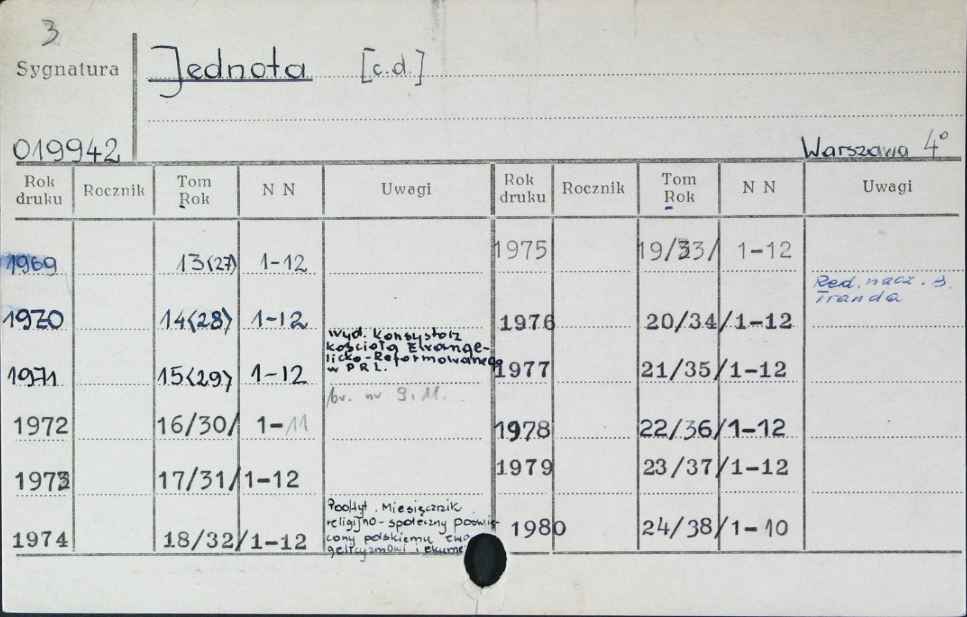 3
Sygnatura
Jednota [c.d.]
019942
Warszawa 4°
Rok druku Rocznik Tom Rok N N Uwagi
1969 13(27) 1-12
1970 14(28) 1-12
wyd. Konsystorz
Kościoła Ewange-
licko-Reformowanego
w PRL.
1971 15(29) 1-12
br. nr 9.11.
1972 16/30/ 1-11
1973 17/31/ 1-12
Podtyt. Miesięcznik
religijno-społeczny poświę-
cony polskiemu ewa
gelicyzmowi i ekume
1974 18/32/ 1-12
Rok druku Rocznik Tom Rok N N Uwagi
1975 19/33/ 1-12
Red. nacz. B.
Tranda
1976 20/34/ 1-12
1977 21/35/ 1-12
1978 22/36/ 1-12
1979 23/37/ 1-12
1980 24/38/ 1-10